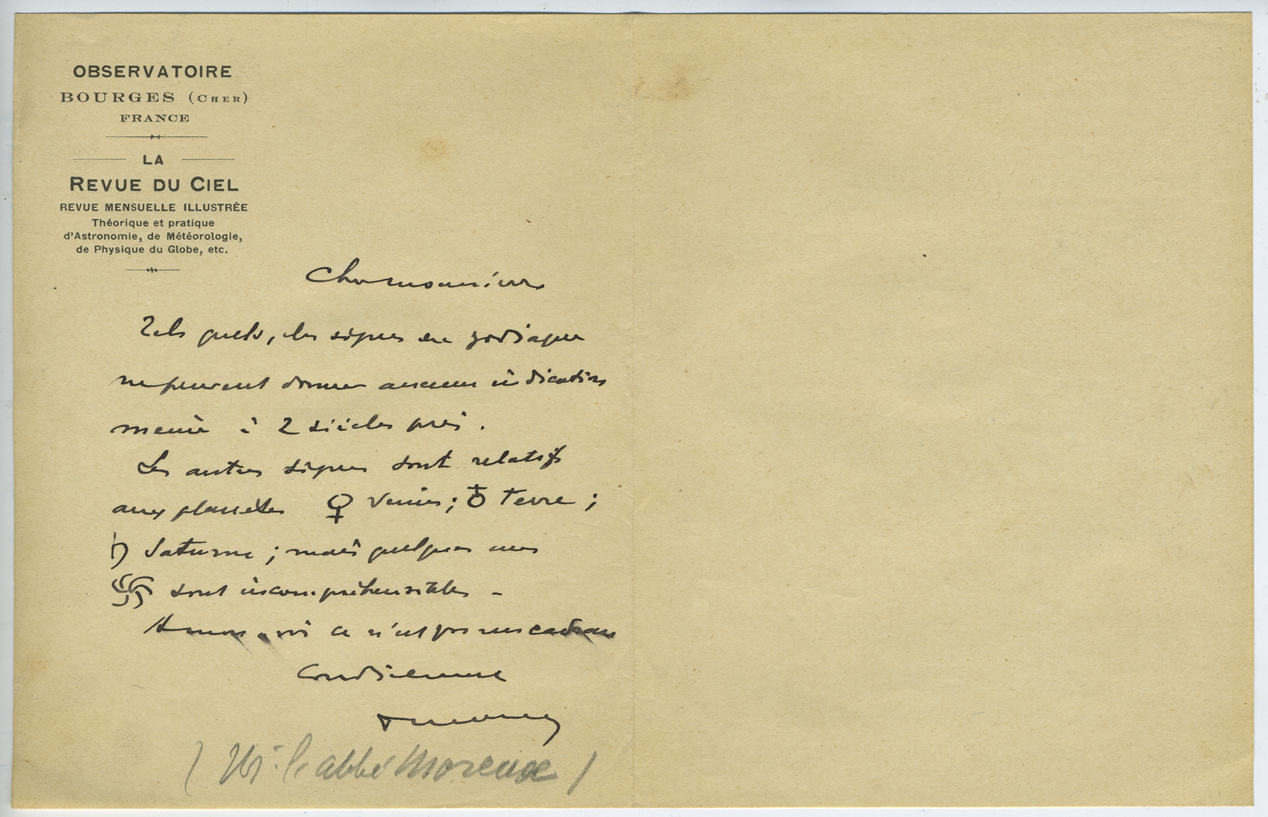 OBSERVATOIRE
BOURGES (CHER)
FRANCE
LA
REVUE DU CIEL
REVUE MENSUELLE ILLUSTRÉE
Théorique et pratique
d'Astronomie, de Météorologie,
de Physique du Globe, etc.
Cher monsieur
Tels quels, les signes du zodiaque
ne peuvent donner aucune indication
même à 2 siècles près.
Les autres signes sont relatifs
aux planètes ♀ Vénus; ♁ Terre;
♄ Saturne; mais quelques uns
sont incompréhensibles -
A mon avis ce n'est pas un cadran
Cordialement
(Mr l'abbé Moreux)